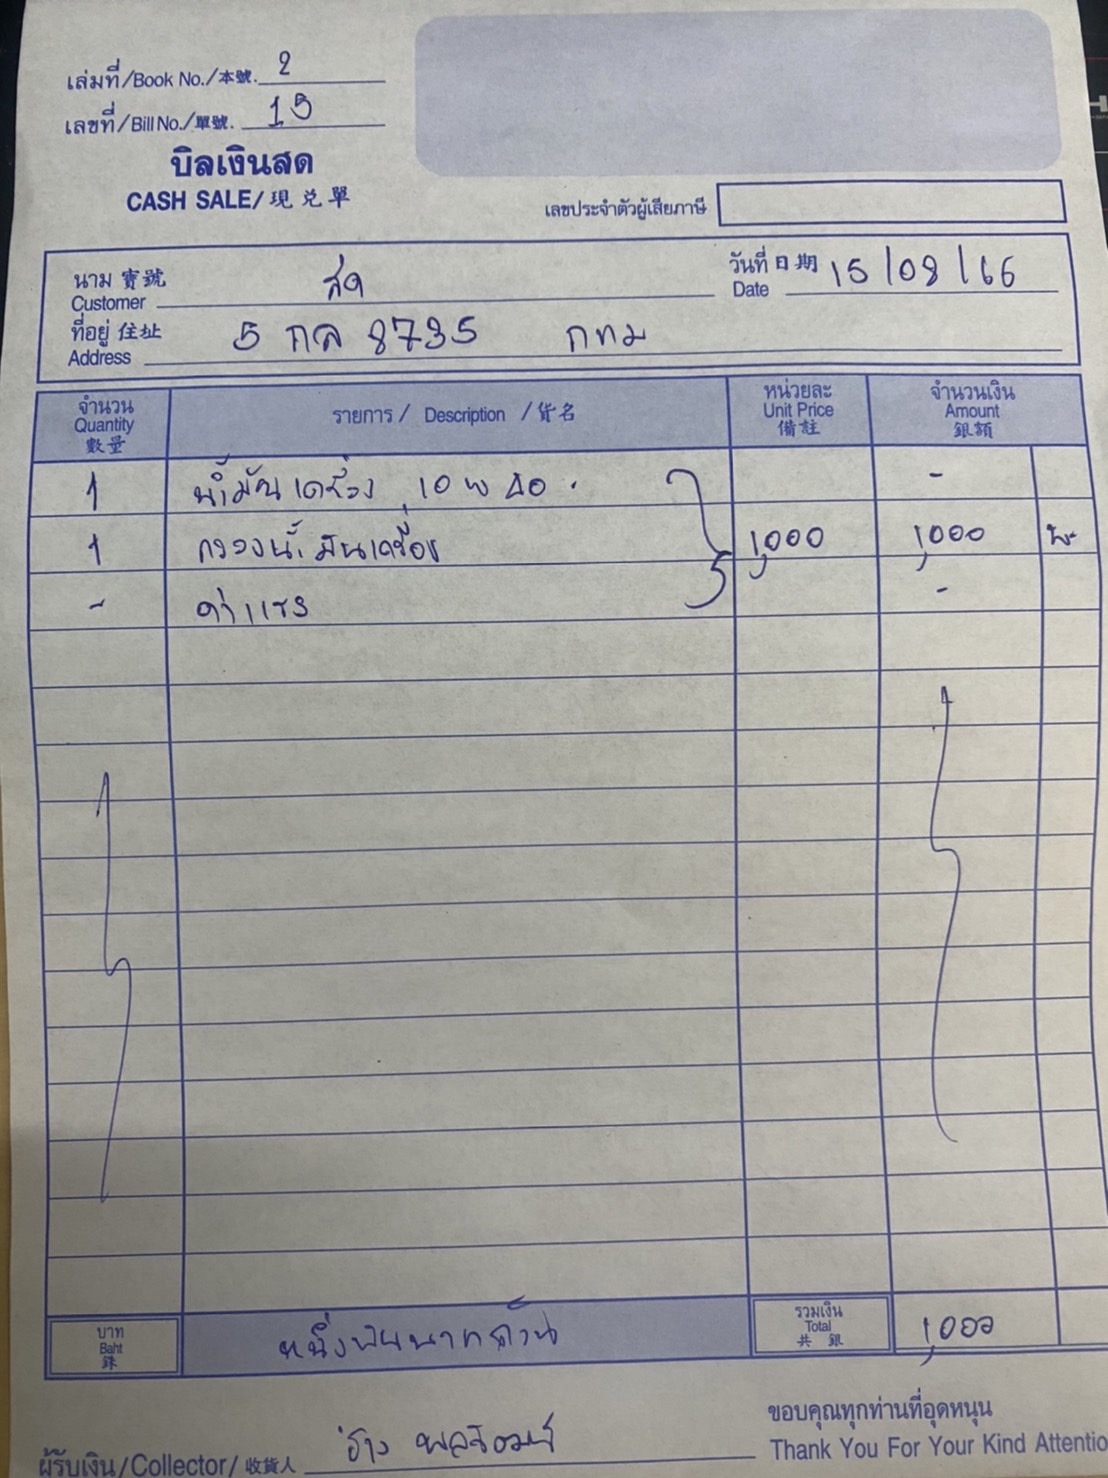 เล่มที่/Book No./本號. 2
เลขที่/Bill No./單號. 15
บิลเงินสด
CASH SALE/現兌單
เลขประจำตัวผู้เสียภาษี
นาม 寶號
Customer สด
วันที่ 日期 15/08/66
Date
ที่อยู่ 住址 5 กล 8735 กทม
Address
จำนวน รายการ / Description / 貨名 หน่วยละ จำนวนเงิน
Quantity Unit Price Amount
數量 備註 銀額
1 น้ำมันเครื่อง 10 w 40 -
1 กรองน้ำมันเครื่อง 1,000 1,000
- ค่าแรง -
บาท หนึ่งพันบาทถ้วน รวมเงิน 1,000
Baht Total
銖 共銀
ขอบคุณทุกท่านที่อุดหนุน
ผู้รับเงิน/Collector/收貨人 ช่าง
Thank You For Your Kind Attentio